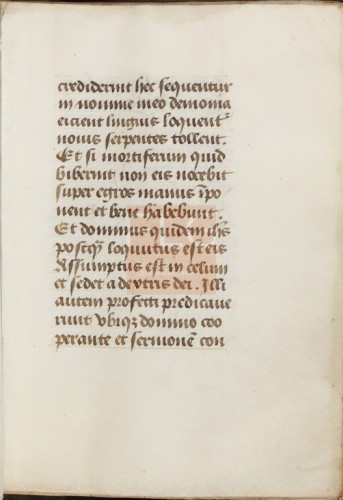 crediderint hec sequentur
in nomine meo demonia
eicient linguis loquent᷑
nouis serpentes tollent.
Et si mortiferum quid
biberint non eis nocebit
super egros manus īpo
nent et bene habebunt.
Et dominus quidem ihs̄
postqꝫ loquutus est eis
Assumptus est in celum
et sedet a dextris dei. Illi
autem profecti predicaue
runt vbiqꝫ domino coo
perante et sermonē con